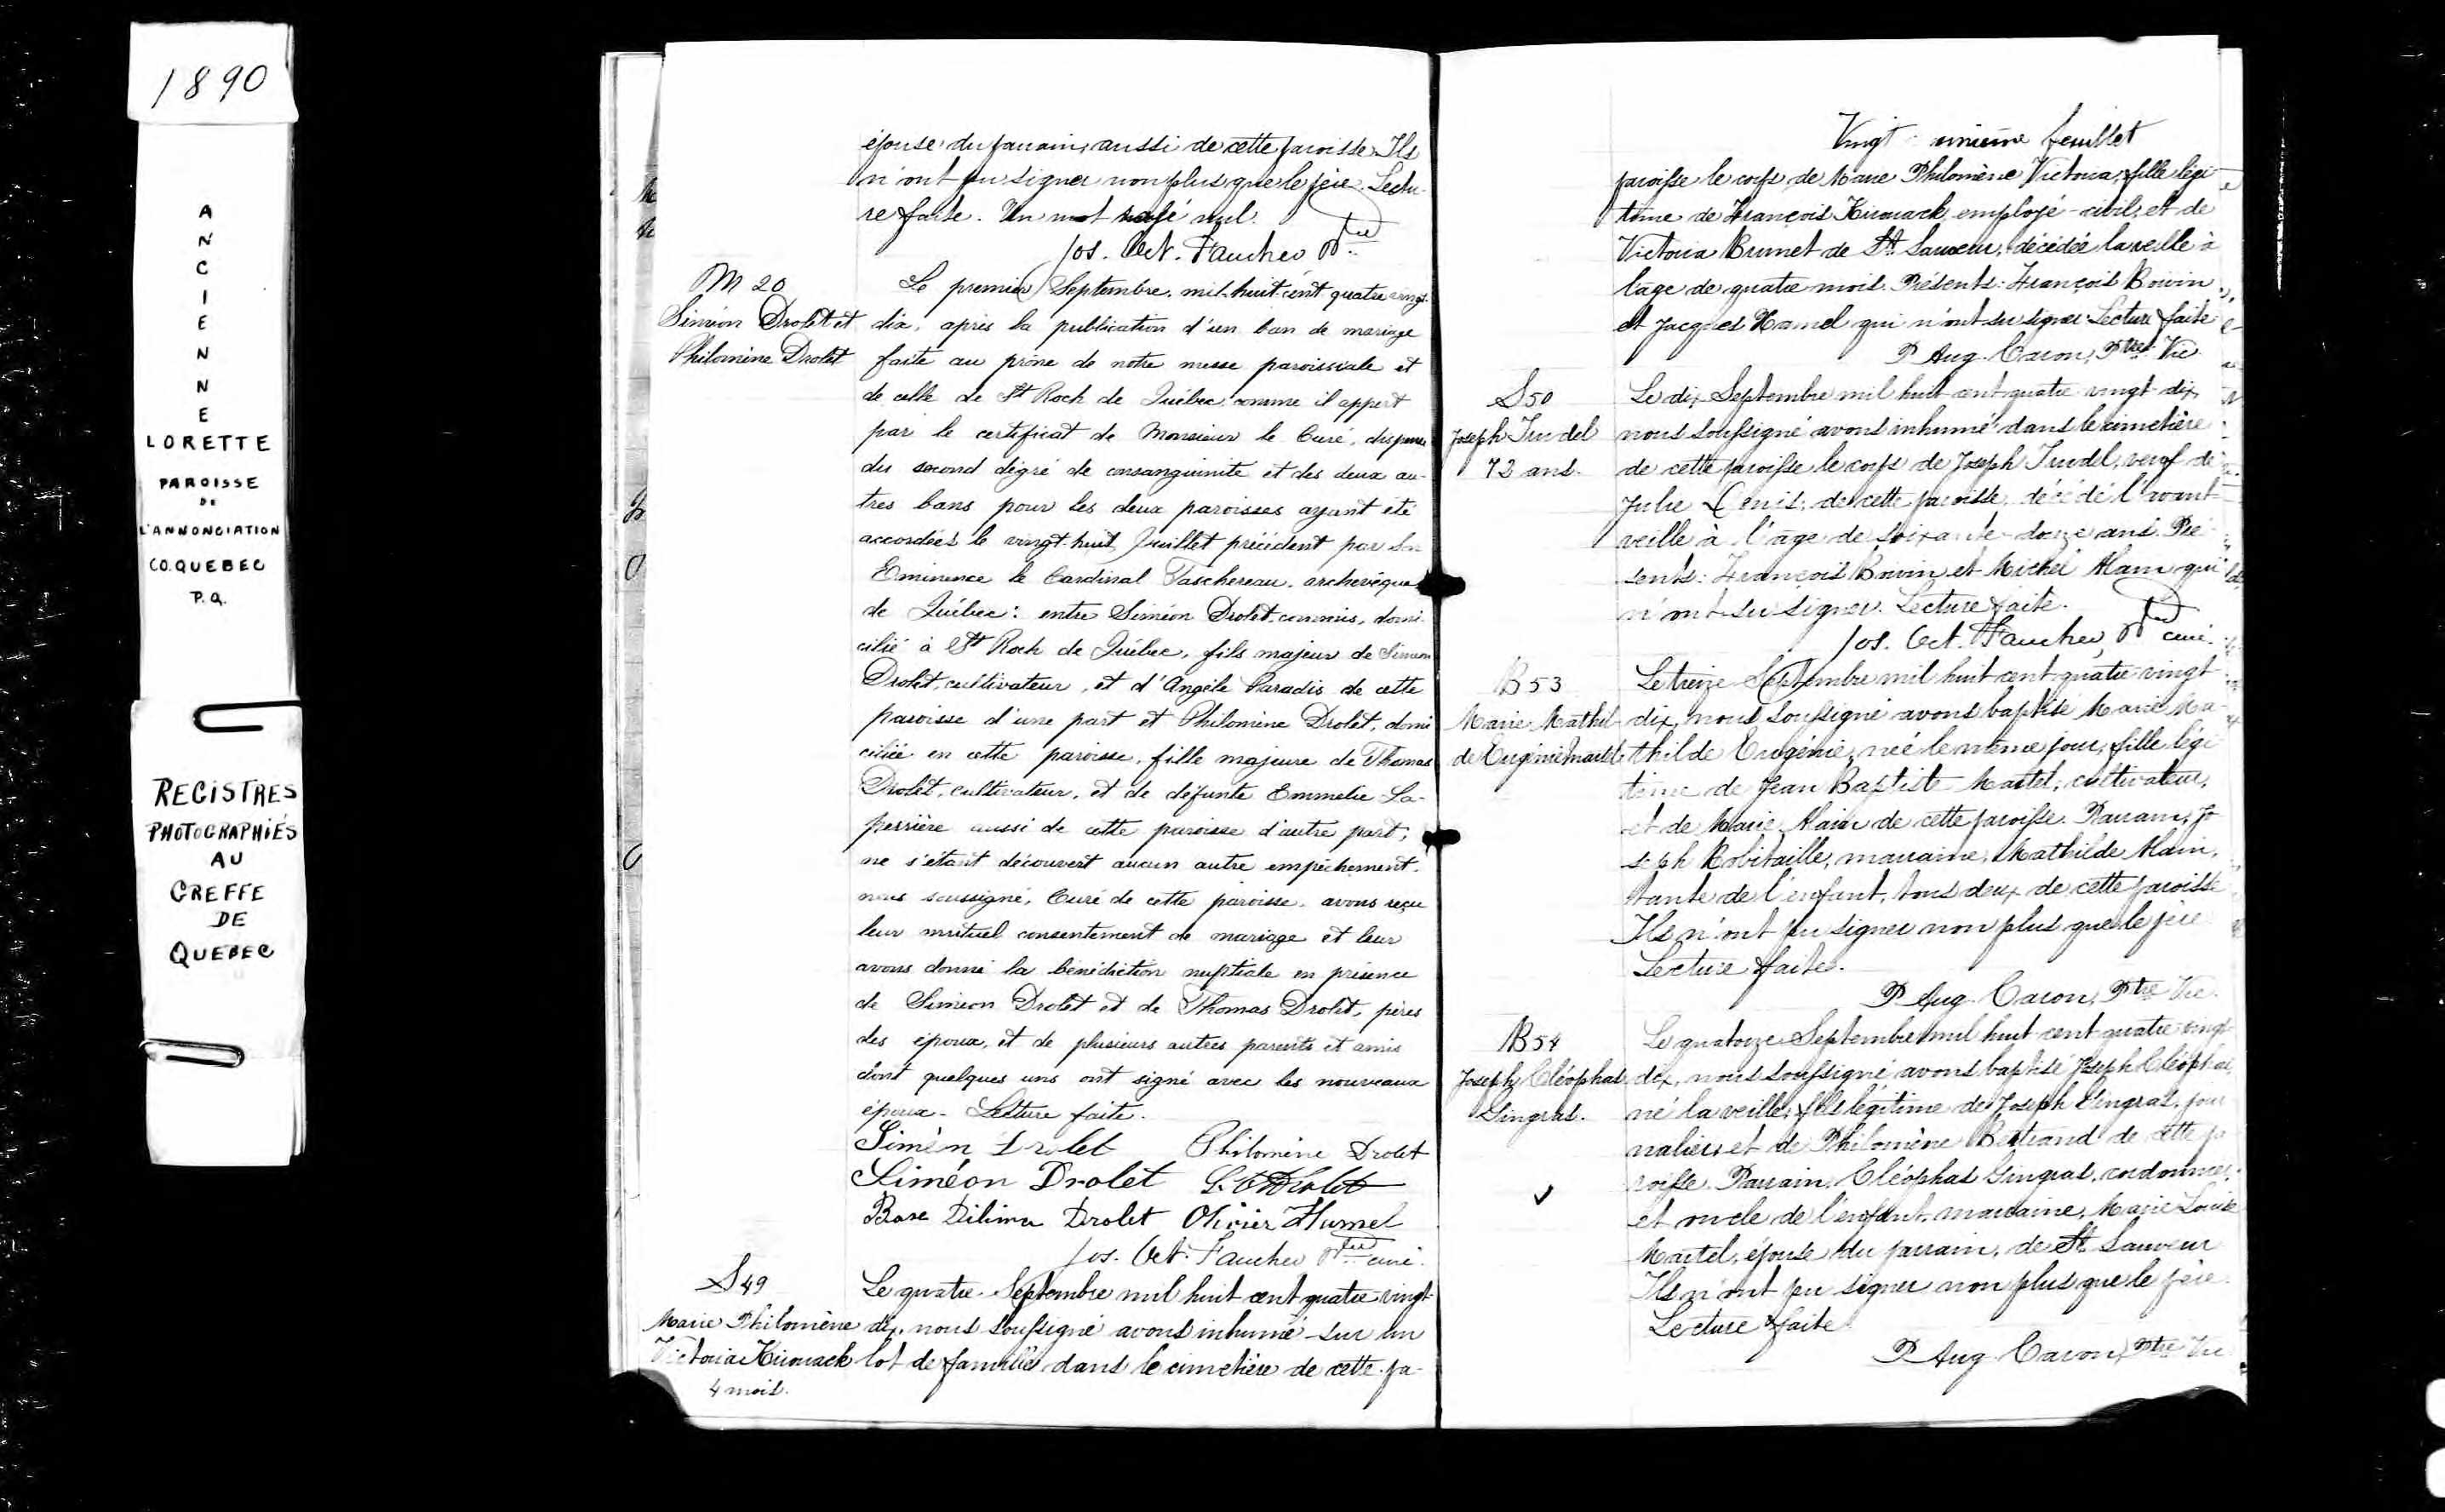 1890
ANCIENNE
LORETTE
PAROISSE
DE
L'ANNONCIATION
CO. QUEBEC
P.Q.
REGISTRES
PHOTOGRAPHIÉS
AU
GREFFE
DE
QUEBEC
épouse du parrain, aussi de cette paroisse. Ils
n'ont pu signer non plus que le père. Lectu-
re faite. Un mot rayé nul.
Jos. Oct. Faucher Ptre
M 20
Siméon Drolet et
Philomène Drolet
Le premier Septembre, mil-huit-cent quatre vingt-
dix, après la publication d'un ban de mariage
faite au prône de notre messe paroissiale et
de celle de St Roch de Québec, comme il appert
par le certificat de Monsieur le Curé, dispense
du second dégré de consanguinité et des deux au-
tres bans pour les deux paroisses ayant été
accordées le vingt-huit Juillet précédent par Son
Eminence le Cardinal Taschereau, archevêque
de Québec: entre Siméon Drolet, commis, domi-
cilié à St Roch de Québec, fils majeur de Siméon
Drolet, cultivateur, et d'Angèle Paradis de cette
paroisse d'une part et Philomène Drolet, domi
ciliée en cette paroisse, fille majeure de Thomas
Drolet, cultivateur, et de défunte Emmelie La-
perrière aussi de cette paroisse d'autre part;
ne s'étant découvert aucun autre empêchement,
nous soussigné, Curé de cette paroisse, avons reçu
leur mutuel consentement de mariage et leur
avons donné la bénédiction nuptiale en présence
de Siméon Drolet et de Thomas Drolet, pères
des époux, et de plusieurs autres parents et amis
dont quelques uns ont signé avec les nouveaux
époux - Lecture faite.
Siméon Drolet Philomène Drolet
Siméon Drolet Drolet
Rose Délima Drolet Olivier Hamel
Jos. Oct. Faucher Ptre curé.
S 49
Marie Philomène
Victoria Kirouack
4 mois.
Le quatre Septembre mil huit cent quatre vingt
dix, nous soussigné avons inhumé sur un
lot de famille dans le cimetière de cette pa-
Vingt unième feuillet
paroisse le corps de Marie Philomène Victoria, fille légi
time de François Kirouack employé-civil, et de
Victoria Brunet de St. Sauveur, décédée la veille à
l'age de quatre mois. Présents: François Boivin
et Jacques Hamel qui n'ont su signer. Lecture faite
P Aug. Caron, Ptre Vic.
S 50
Joseph Trudel
72 ans.
Le dix Septembre mil huit cent quatre vingt-dix,
nous soussigné avons inhumé dans le cimetière
de cette paroisse le corps de Joseph Trudel, veuf de
Julie Denis, de cette paroisse, décédé l'avant
veille à l'âge de soixante-douze ans. Pré-
sents: François Boivin et Michel Alain qui
n'ont su signer. Lecture faite.
Jos. Oct. Faucher, Ptre curé.
B 53
Marie Mathil-
de Eugénie Martel
Le treize Septembre mil huit cent quatre-vingt
dix, nous soussigné avons baptisé Marie Ma-
thilde Eugénie, née le même jour, fille légi
time de Jean Baptiste Martel, cultivateur,
et de Marie Alain de cette paroisse. Parrain, Jo
seph Robitaille, marraine, Mathilde Alain,
tante de l'enfant, tous deux de cette paroisse
Ils n'ont pu signer non plus que le père
Lecture faite.
P Aug. Caron, Ptre Vic.
B 54
Joseph Cléophas
Gingras.
Le quatorze Septembre mil huit cent quatre vingt
dix, nous soussigné avons baptisé Joseph Cléophas,
né la veille, fils légitime de Joseph Gingras, jour
nalier, et de Philomène Bertrand de cette pa
roisse. Parrain, Cléophas Gingras, cordonnier,
et oncle de l'enfant, marraine, Marie Louise
Martel, épouse du parrain, de St Sauveur
Ils n'ont pu signer non plus que le père.
Lecture faite.
P Aug. Caron, Ptre Vic